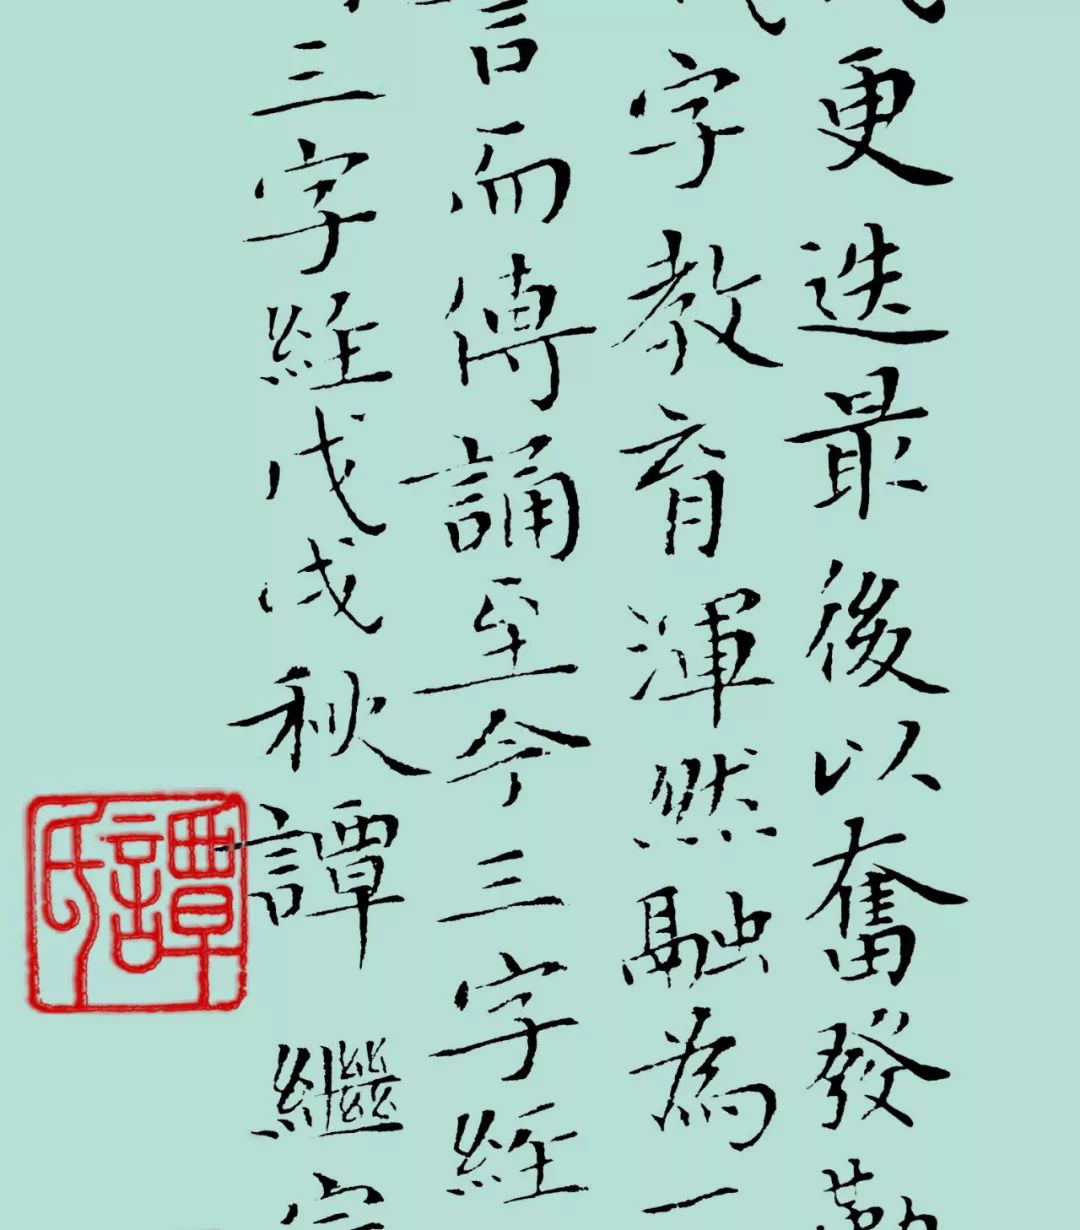 更迭最後以奮發勤
字教育渾然融為一
言而傳誦至今三字經
三字經戊戌秋譚繼
譚氏